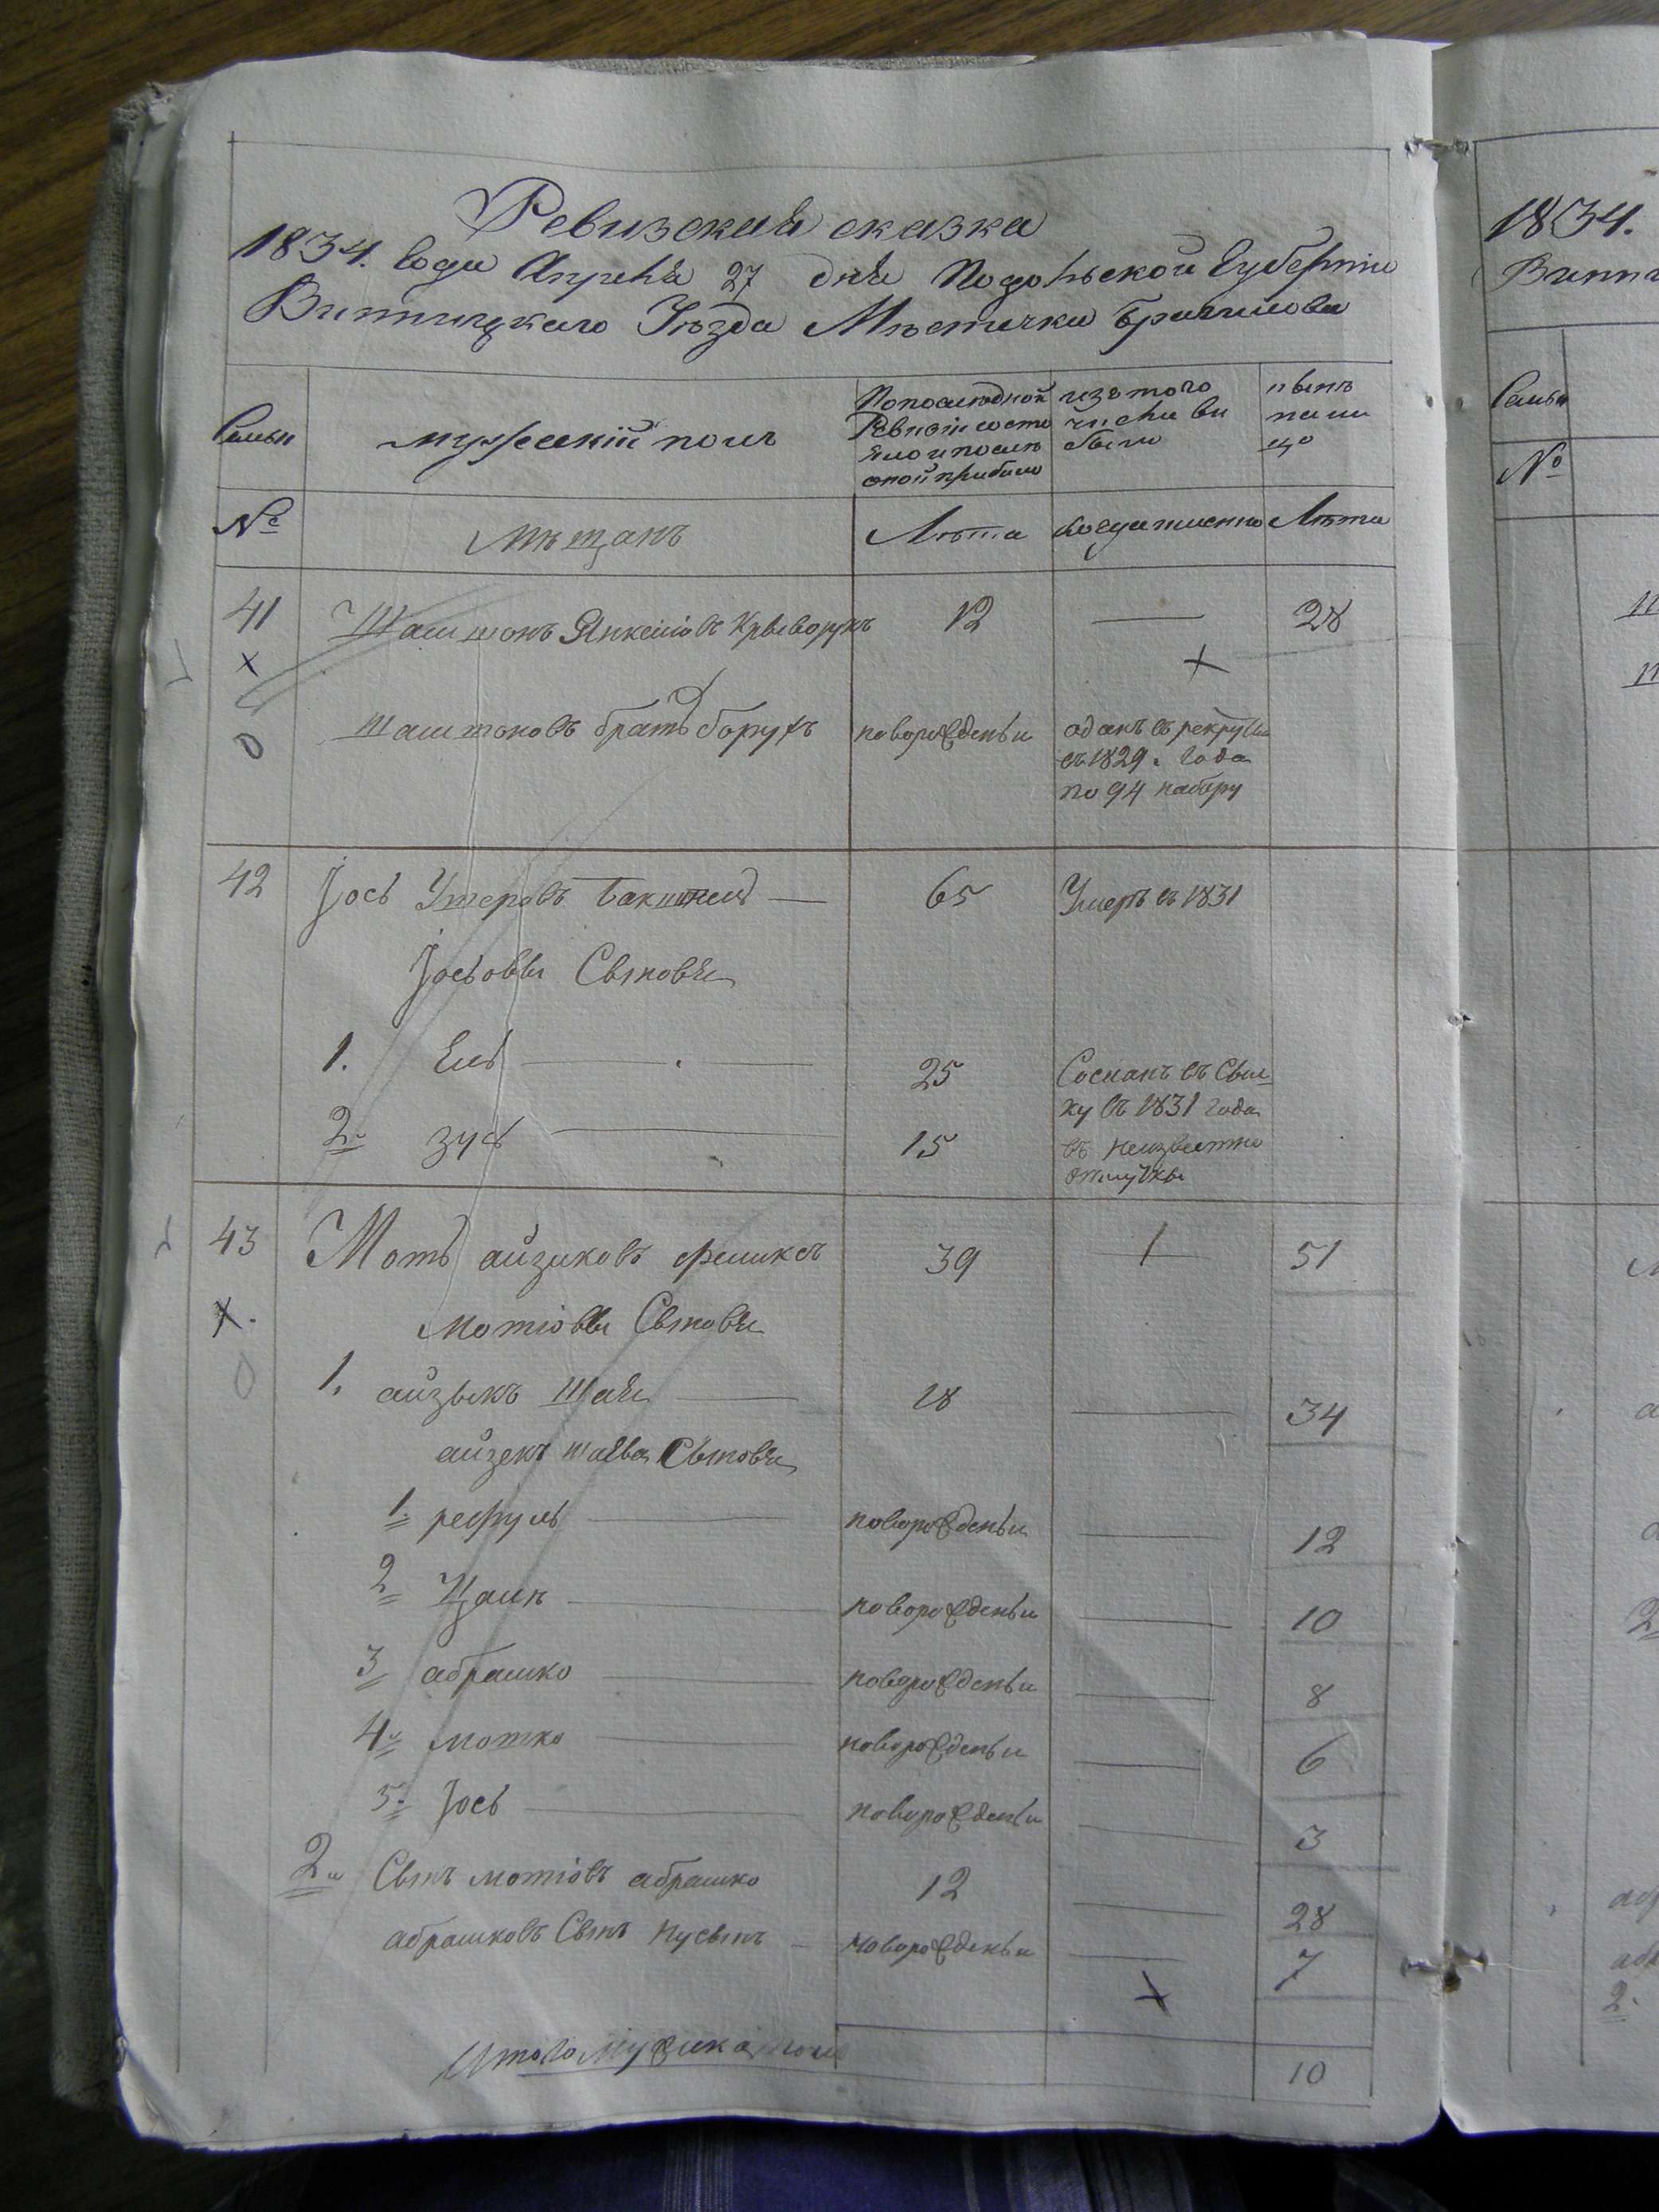 Ревизская сказка
1834. года Апреля 27 дня Подольской Губернiи
Винницкаго Уезда Местечка Браилова
Семьи
мужескiй полъ
По последной Ревизiи состо яло и после оной прибыло
изъ того числа вы было
ныне на ли цо
№
Мещанъ
Лета
когда именно
Лета
41 Шаштокъ Янкелiовъ Крыворукъ 12 28
Шаштоковъ братъ борухъ новорожденъи
одан въ рекруты
въ 1829. года
по 94 набору
42 Iось Утеровъ 65 Умеръ въ 1831
Iосьовы Сыновья
1. Ель 25 Сосланъ въ Сыл
ку въ 1831 года
2 зусь 15 въ неизвестно
отлучкы
43 Моть айзиковъ 39 51
Мотiовы Сыновья
1. айзыкъ Шая 18 34
айзекъ шаева Сыновья
1. рефуль новорожденъи 12
2 новорожденъи 10
3 абрашко новорожденъи 8
4 мотко новорожденъи 6
5. Iось новорожденъи 3
2 Сынъ мотiовъ абрашко 12 28
абрашковъ Сынъ нусынъ новорожденъи 7
Итого мужска пола 10
1834.
Винни
Семьи
№